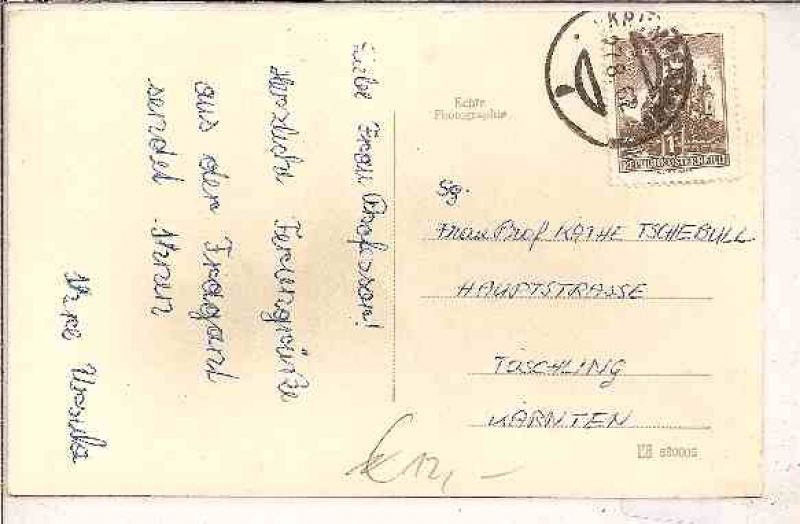 Liebe Frau Professor!
Herzliche Feriengrüße
aus der Fragant
sendet Ihnen
Ihre Ursula
Echte
Photographie
1S
REPUBLIK ÖSTERREICH
Sg.
Frau Prof KÄTHE TSCHEBULL
HAUPTSTRASSE
TÖSCHLING
KÄRNTEN
12,-